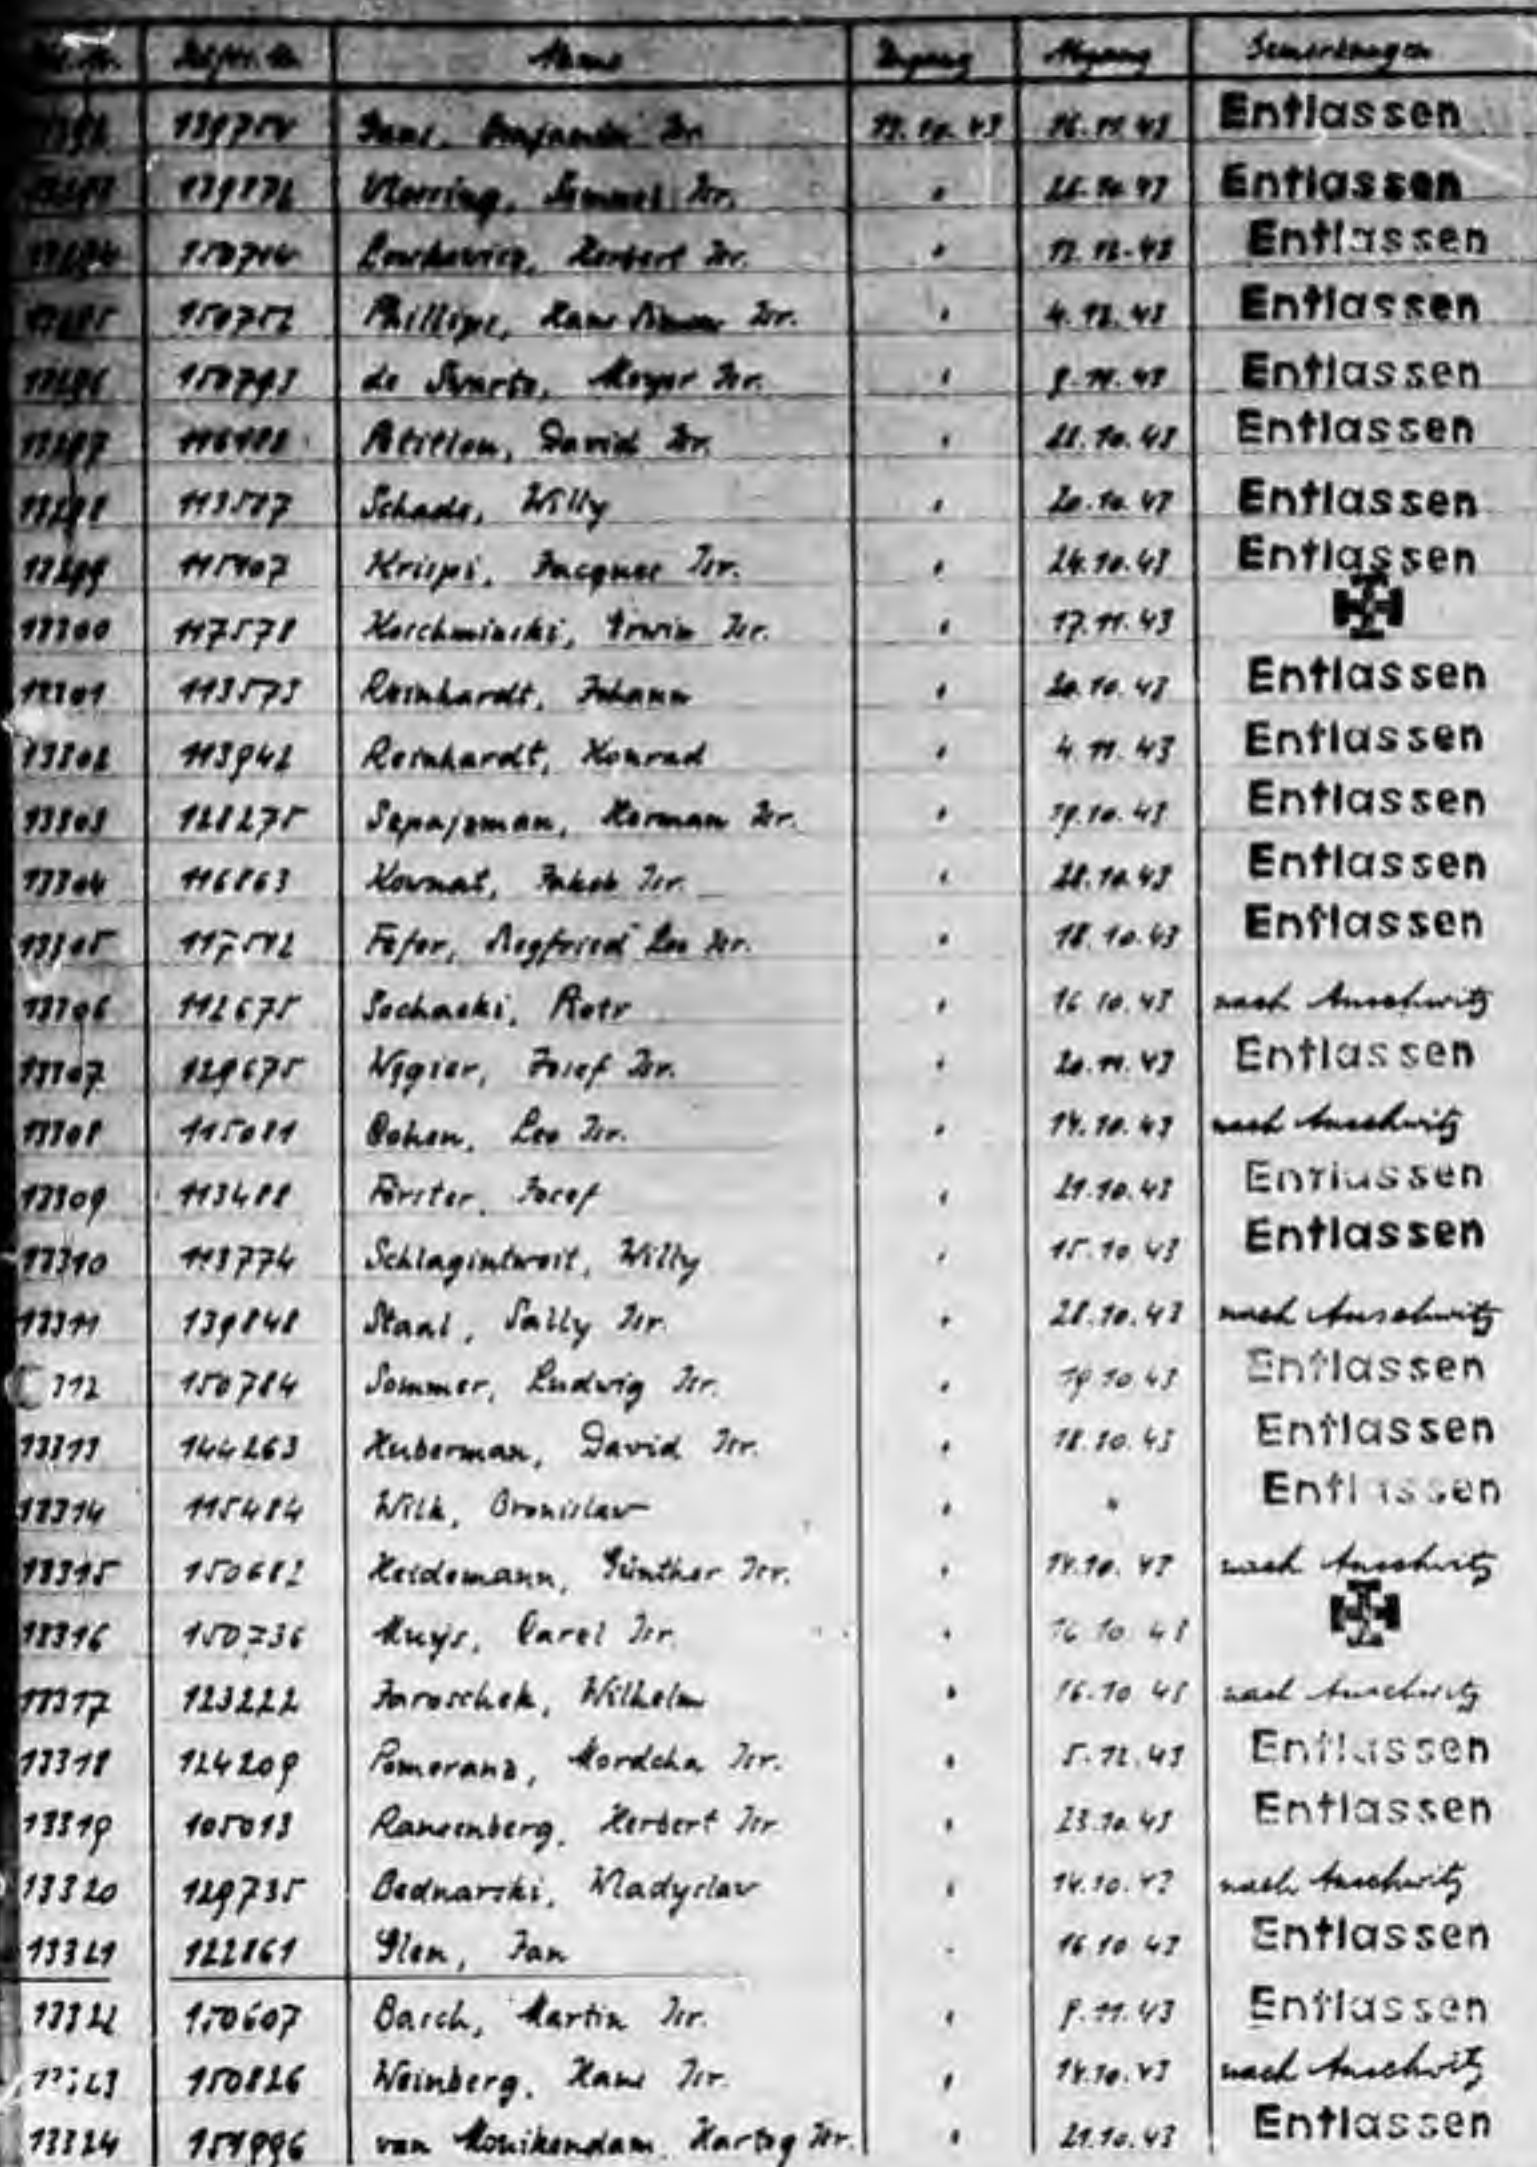 Name Zugang Abgang Bemerkungen
139750 Isr. 16.11.43 Entlassen
139872 Isr. " Entlassen
Herbert Isr. " 12.12.43 Entlassen
150752 Phillips, Hans Isr. " 4.12.43 Entlassen
150793 de Swarte, Meyer Isr. " Entlassen
David Isr. " 28.10.43 Entlassen
113507 Schade, Willy " 20.10.43 Entlassen
13299 115107 Krispi, Jacques Isr. " 24.10.43 Entlassen
13300 117578 Koschminski, Erwin Isr. " 17.11.43
13301 113573 Reinhardt, Johann " 20.10.43 Entlassen
13302 113942 Reinhardt, Konrad " 4.11.43 Entlassen
13303 128275 Szpajzman, Herman Isr. " 19.10.43 Entlassen
13304 116863 Kownat, Jakob Isr. " 28.10.43 Entlassen
13305 117512 Fefer, Siegfried Leo Isr. " 18.10.43 Entlassen
13306 112675 Sochacki, Piotr " 16.10.43 nach Auschwitz
13307 129675 Wygier, Josef Isr. " 20.11.43 Entlassen
13308 115081 Cohen, Leo Isr. " 14.10.43 nach Auschwitz
13309 113488 Förster, Josef " 21.10.43 Entlassen
13310 113774 Schlagintweit, Willy " 15.10.43 Entlassen
13311 139848 Staal, Sally Isr. " 28.10.43 nach Auschwitz
312 150784 Sommer, Ludwig Isr. " 19.10.43 Entlassen
13313 144263 Huberman, David Isr. " 18.10.43 Entlassen
13314 115484 Wilk, Bronislaw " " Entlassen
13315 150682 Heidemann, Günther Isr. " 14.10.43 nach Auschwitz
13316 150736 Muijs, Carel Isr. " 16.10.43
13317 123222 Jaroschek, Wilhelm " 16.10.43 nach Auschwitz
13318 124209 Pomeranz, Mordcha Isr. " 5.12.43 Entlassen
13319 105013 Ransenberg, Herbert Isr. " 23.10.43 Entlassen
13320 129735 Bednarski, Wladyslaw " 14.10.43 nach Auschwitz
13321 122861 Glen, Jan " 16.10.43 Entlassen
13322 150607 Basch, Martin Isr. " Entlassen
13323 150826 Weinberg, Hans Isr. " 14.10.43 nach Auschwitz
13324 151996 van Monikendam, Hartog Isr. " 21.10.43 Entlassen